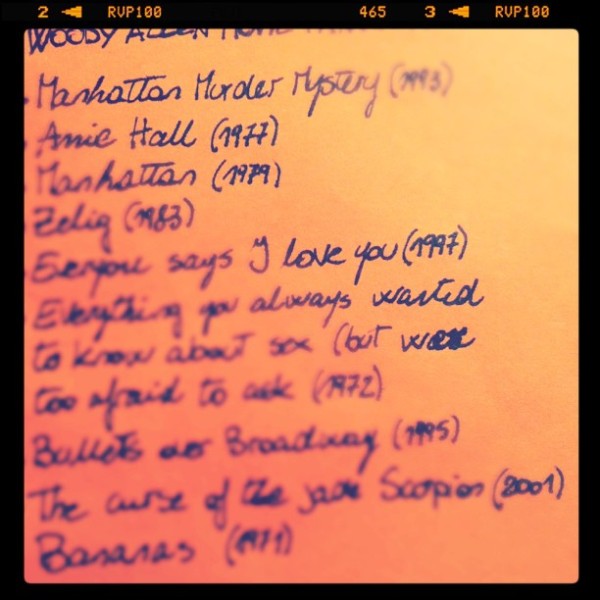 2 RVP100 465 3 RVP100
WOODY ALLEN MOVIE
Manhattan Murder Mystery (1993)
Annie Hall (1977)
Manhattan (1979)
Zelig (1983)
Everyone says I love you (1997)
Everything you always wanted
to know about sex (but were
too afraid to ask (1972)
Bullets over Broadway (1995)
The curse of the jade Scorpion (2001)
Bananas (1971)